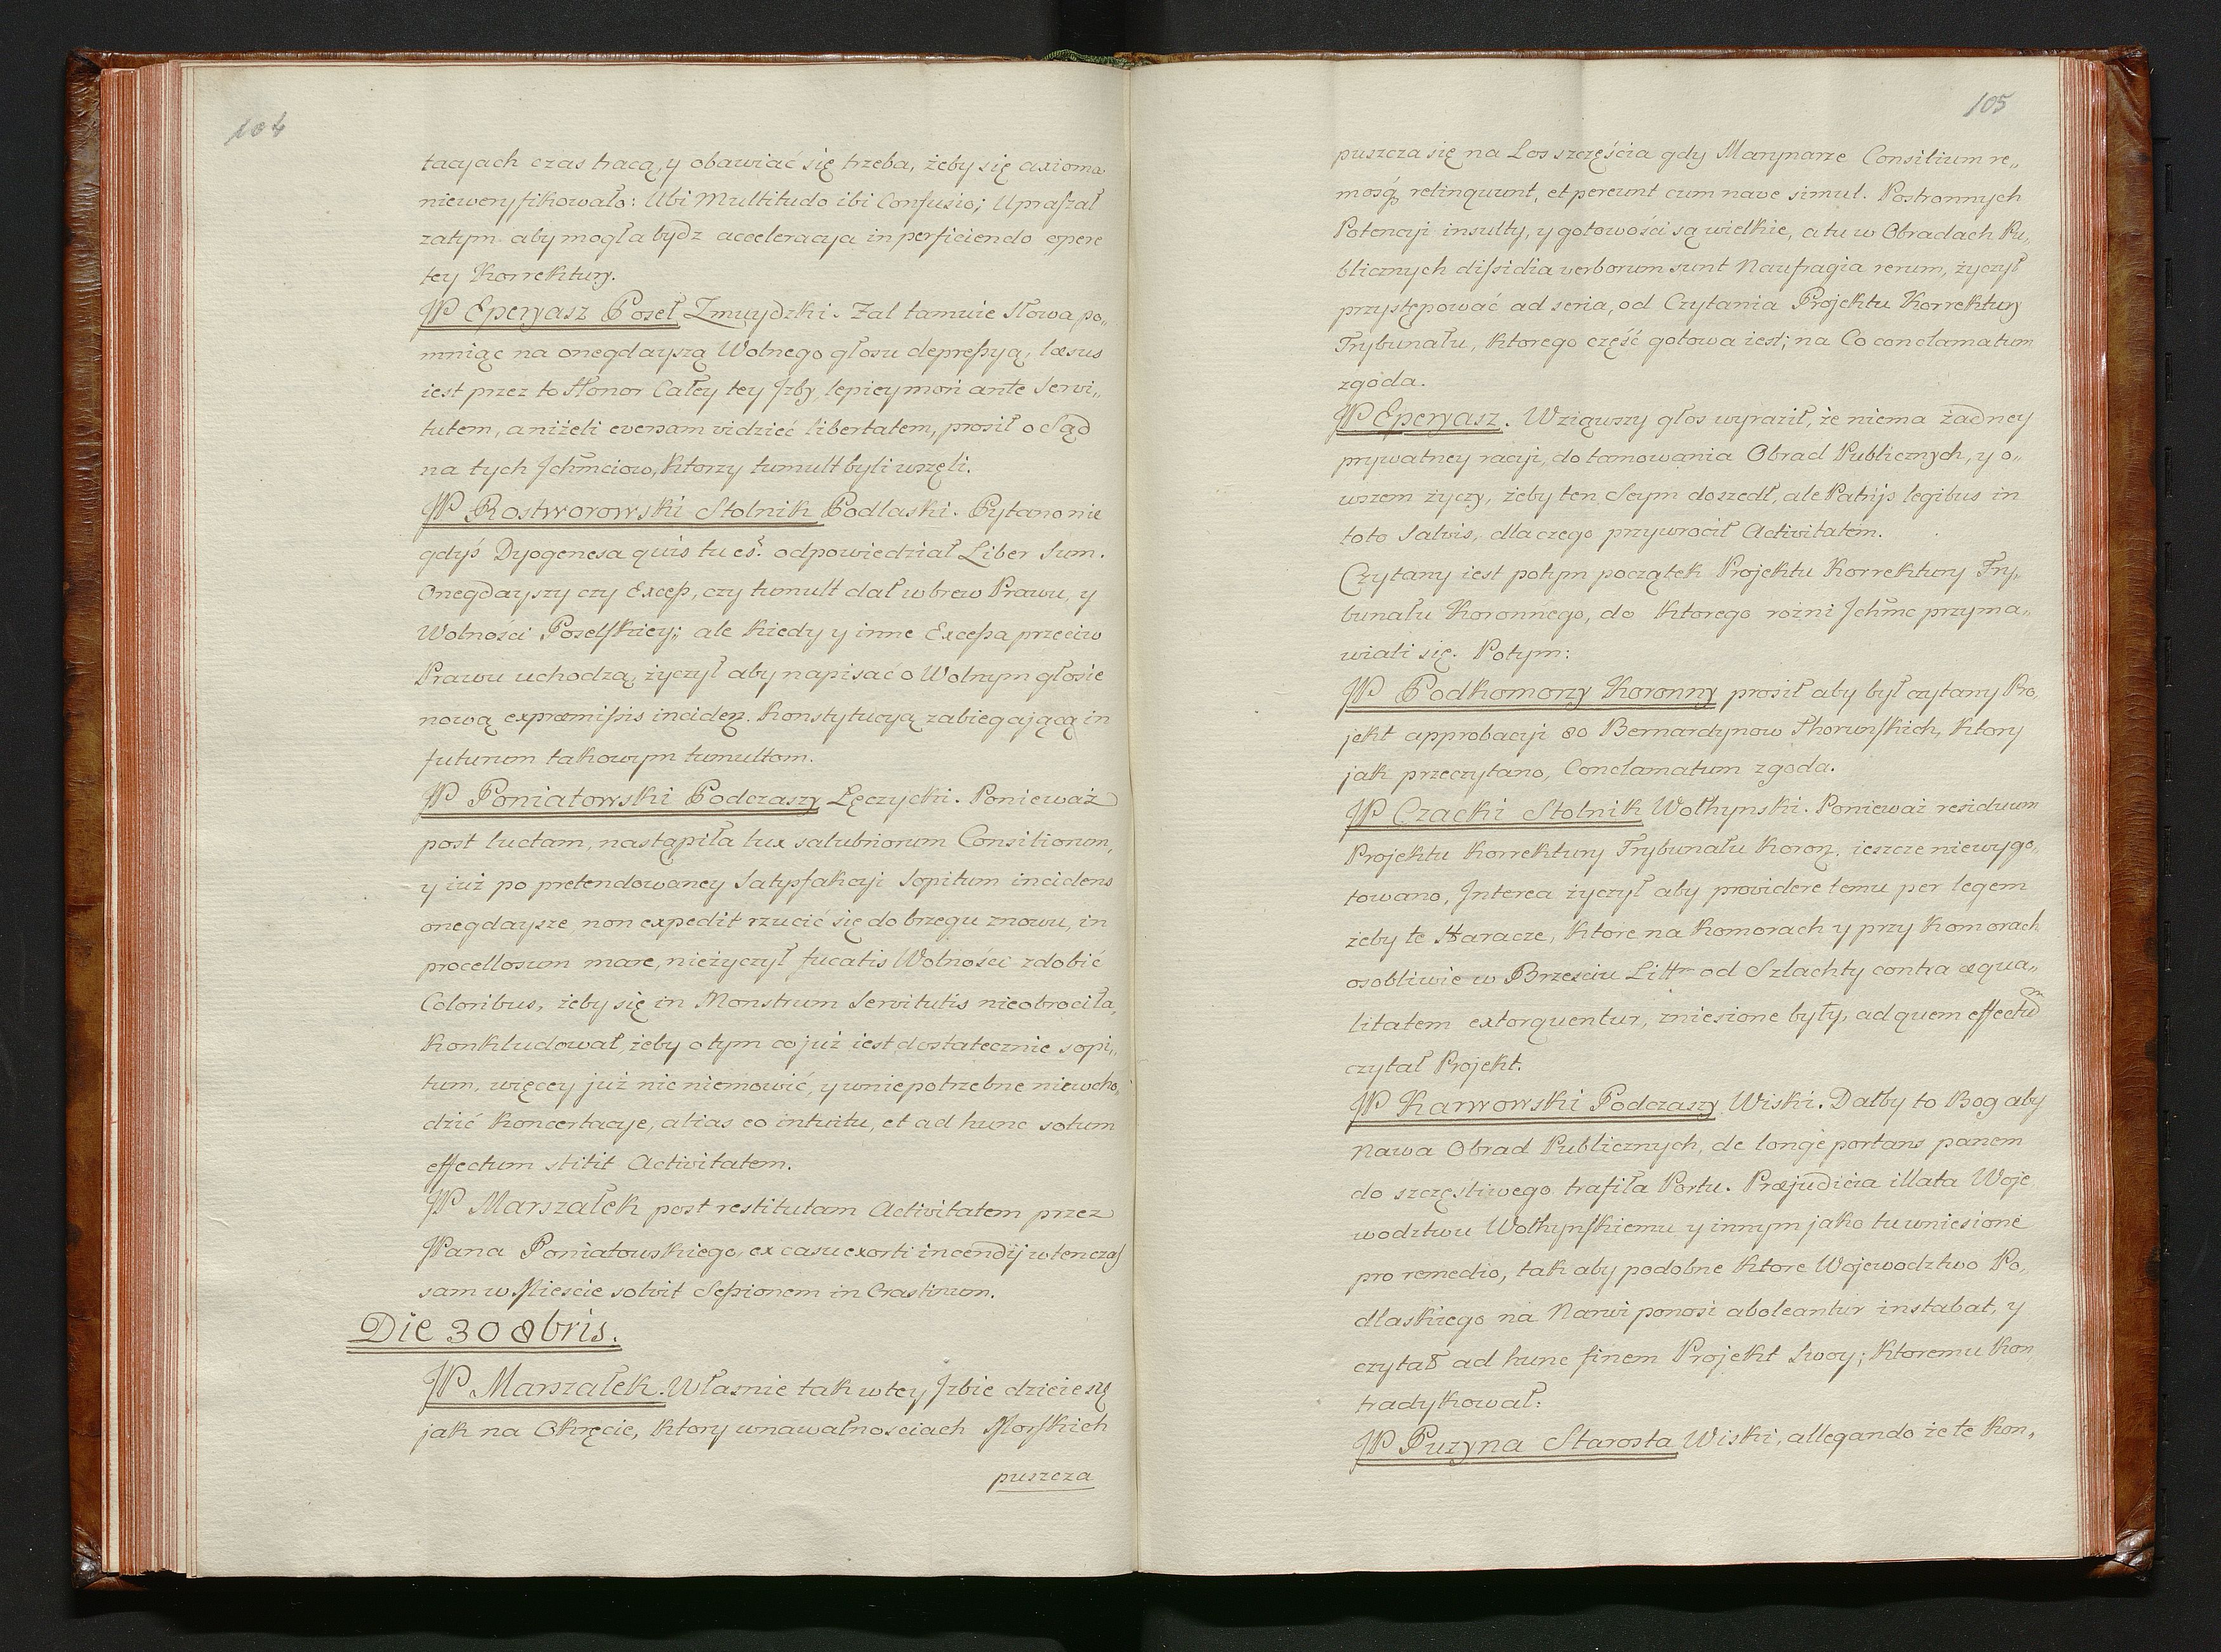 104
tacyach czas tracą, y obawiać się trzeba, żeby się axioma
nieweryfikowało: Ubi Multitudo ibi Confusio; Upraszał
zatym aby mogła bydz acceleracya in perficiendo opere
tey Korrektury.
JP Eperyasz Poseł Zmuydzki. Zal tamuie słowa po„
mniąc na onegdayszą Wolnego głosu depressyą, læsus
iest przez to Honor Całey tey Jzby, lepiey mori ante Servi„
tutem, a niżeli eversam vidzieć libertatem, prosił o Sąd
na tych Jchmciow, ktorzy tumult byli wszęli.
JP Rostworowski Stolnik Podlaski. Pytano nie
gdyś Dyogenesa quis tu es? odpowiedział Liber Sum.
Onegdayszy czy Excess, czy tumult dał wbrew Prawu, y
Wolności Poselskiey; ale kiedy y inne Excessa przeciw
Prawu uchodzą, życzył aby napisać o Wolnym głosie
nową ex præmissis inciden. Konstytucyą zabiegającą in
futurum takowym tumultom.
JP Poniatowski Podczaszy Lęczycki. Ponieważ
post luctam, nastąpiła lux salubriorum Consiliorum,
y iuż po pretendowaney Satysfakcyi Sopitum incidens
onegdaysze, non expedit rzucić się do brzegu znowu, in
procellosum mare, nieżyczył fucatis Wolności zdobić
Coloribus, żeby się in Monstrum Servitutis nieobrociła,
Konkludował, żeby o tym co już iest dostatecznie sopi„
tum, więcey już nic niemowić, y wniepotrzebne niewcho„
dzić Koncertacye, alias eo intuitu, et ad hunc solum
effectum stitit Activitatem.
JP Marszałek post restitutam Activitatem przez
JPana Poniatowskiego, ex casu exorti incendij wtenczas
sam w Mieście solvit Sessionem in Crastinum.
Die 30 8bris.
JP Marszałek. Własnie tak w tey Jzbie dzieie się
jak na Okręcie, ktory wnawałnosciach Morskich
puszcza
105
puszcza się na Los szczęścia gdy Marynarze Consilium re„
mosq relinquunt, et pereunt cum nave simul. Postronnych
Potencyi insulty, y gotowości są wielkie, a tu w Obradach Pu„
blicznych dissidia verborum sunt Naufragia rerum, życzył
przystępować ad seria, od Czytania Projektu Korrektury
Trybunału, ktorego część gotowa iest; na Co conclamatum
zgoda.
JP Eperyasz. Wziąwszy głos wyraził, że niema żadney
prywatney racyi, do tamowania Obrad Publicznych, y o„
wszem życzy, żeby ten Seym doszedł, ale Patrijs legibus in
toto Salvis, dla czego przywrocił Activitatem.
Czytany iest potym początek Projektu Korrektury Try„
bunału Koronnego, do ktorego rożni Jchmc przyma„
wiali się. Potym:
JP Podkomorzy Koronny prosił aby był czytany Pro„
jekt approbacyi 80 Bernardynow Thorunskich, ktory
jak przeczytano, Conclamatum zgoda.
JP Czacki Stolnik Wołhynski. Ponieważ residuum
Projektu Korrektury Trybunału Koron. ieszcze niewygo„
towano, Interea życzył aby providere temu per legem
żeby te Haracze, ktore na Komorach y przy Komorach
osobliwie w Brzesciu Littm od Szlachty contra æqua„
litatem extorquentur, zniesione były, ad quem effectum
czytał Projekt.
JP Karwowski Podczaszy Wiski. Dałby to Bog aby
Nawa Obrad Publicznych, de longe portans panem
do szczęsliwego trafiła Portu. Præjudicia illata Woje
wodztwu Wołhynskiemu y innym jako tu wniesione
pro remedio, tak aby podobne ktore Wojewodztwo Po„
dlaskiego na Narwi ponosi aboleantur instabat, y
czytał ad hunc finem Projekt Swoy; ktoremu Kon
tradykował:
JP Puzyna Starosta Wiski, allegando że te Kon„